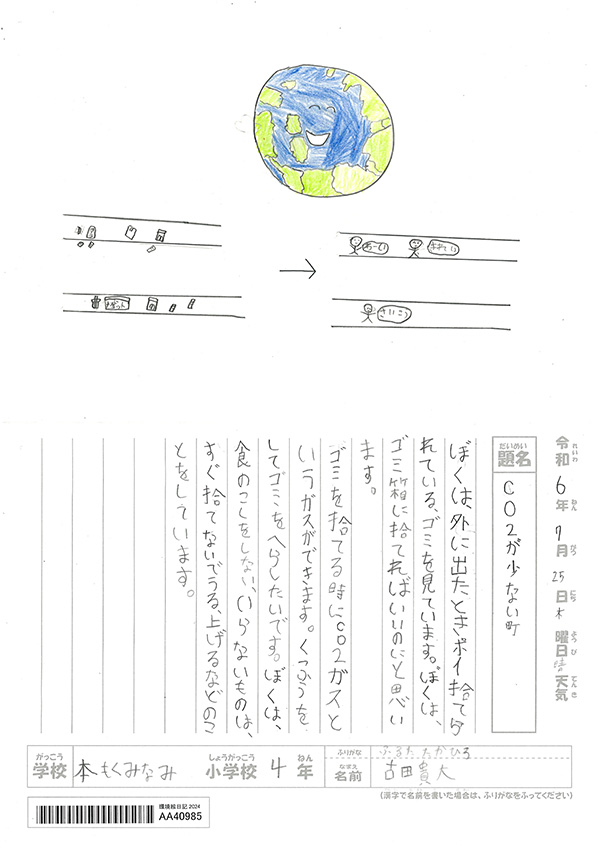 おーい
きれい
さいこう
令和6年7月25日木曜日晴天気
れいわ ねん がつ にち ようび てんき
だいめい
題名
CO2が少ない町
ぼくは、外に出たときポイ捨てら
れている、ゴミを見ています。ぼくは、
ゴミ箱に捨てればいいのにと思い
ます。
ゴミを捨てる時にCO2ガスと
いうガスができます。くふうを
してゴミをへらしたいです。ぼくは、
食のこしをしない、いらないものは、
すぐ捨てないでうる、上げるなどのこ
とをしています。
がっこう しょうがっこう ねん ふりがな ふるた たかひろ
学校 本もくみなみ 小学校 4年 なまえ 名前 古田貴大
(漢字で名前を書いた場合は、ふりがなをふってください)
環境絵日記 2024
AA40985